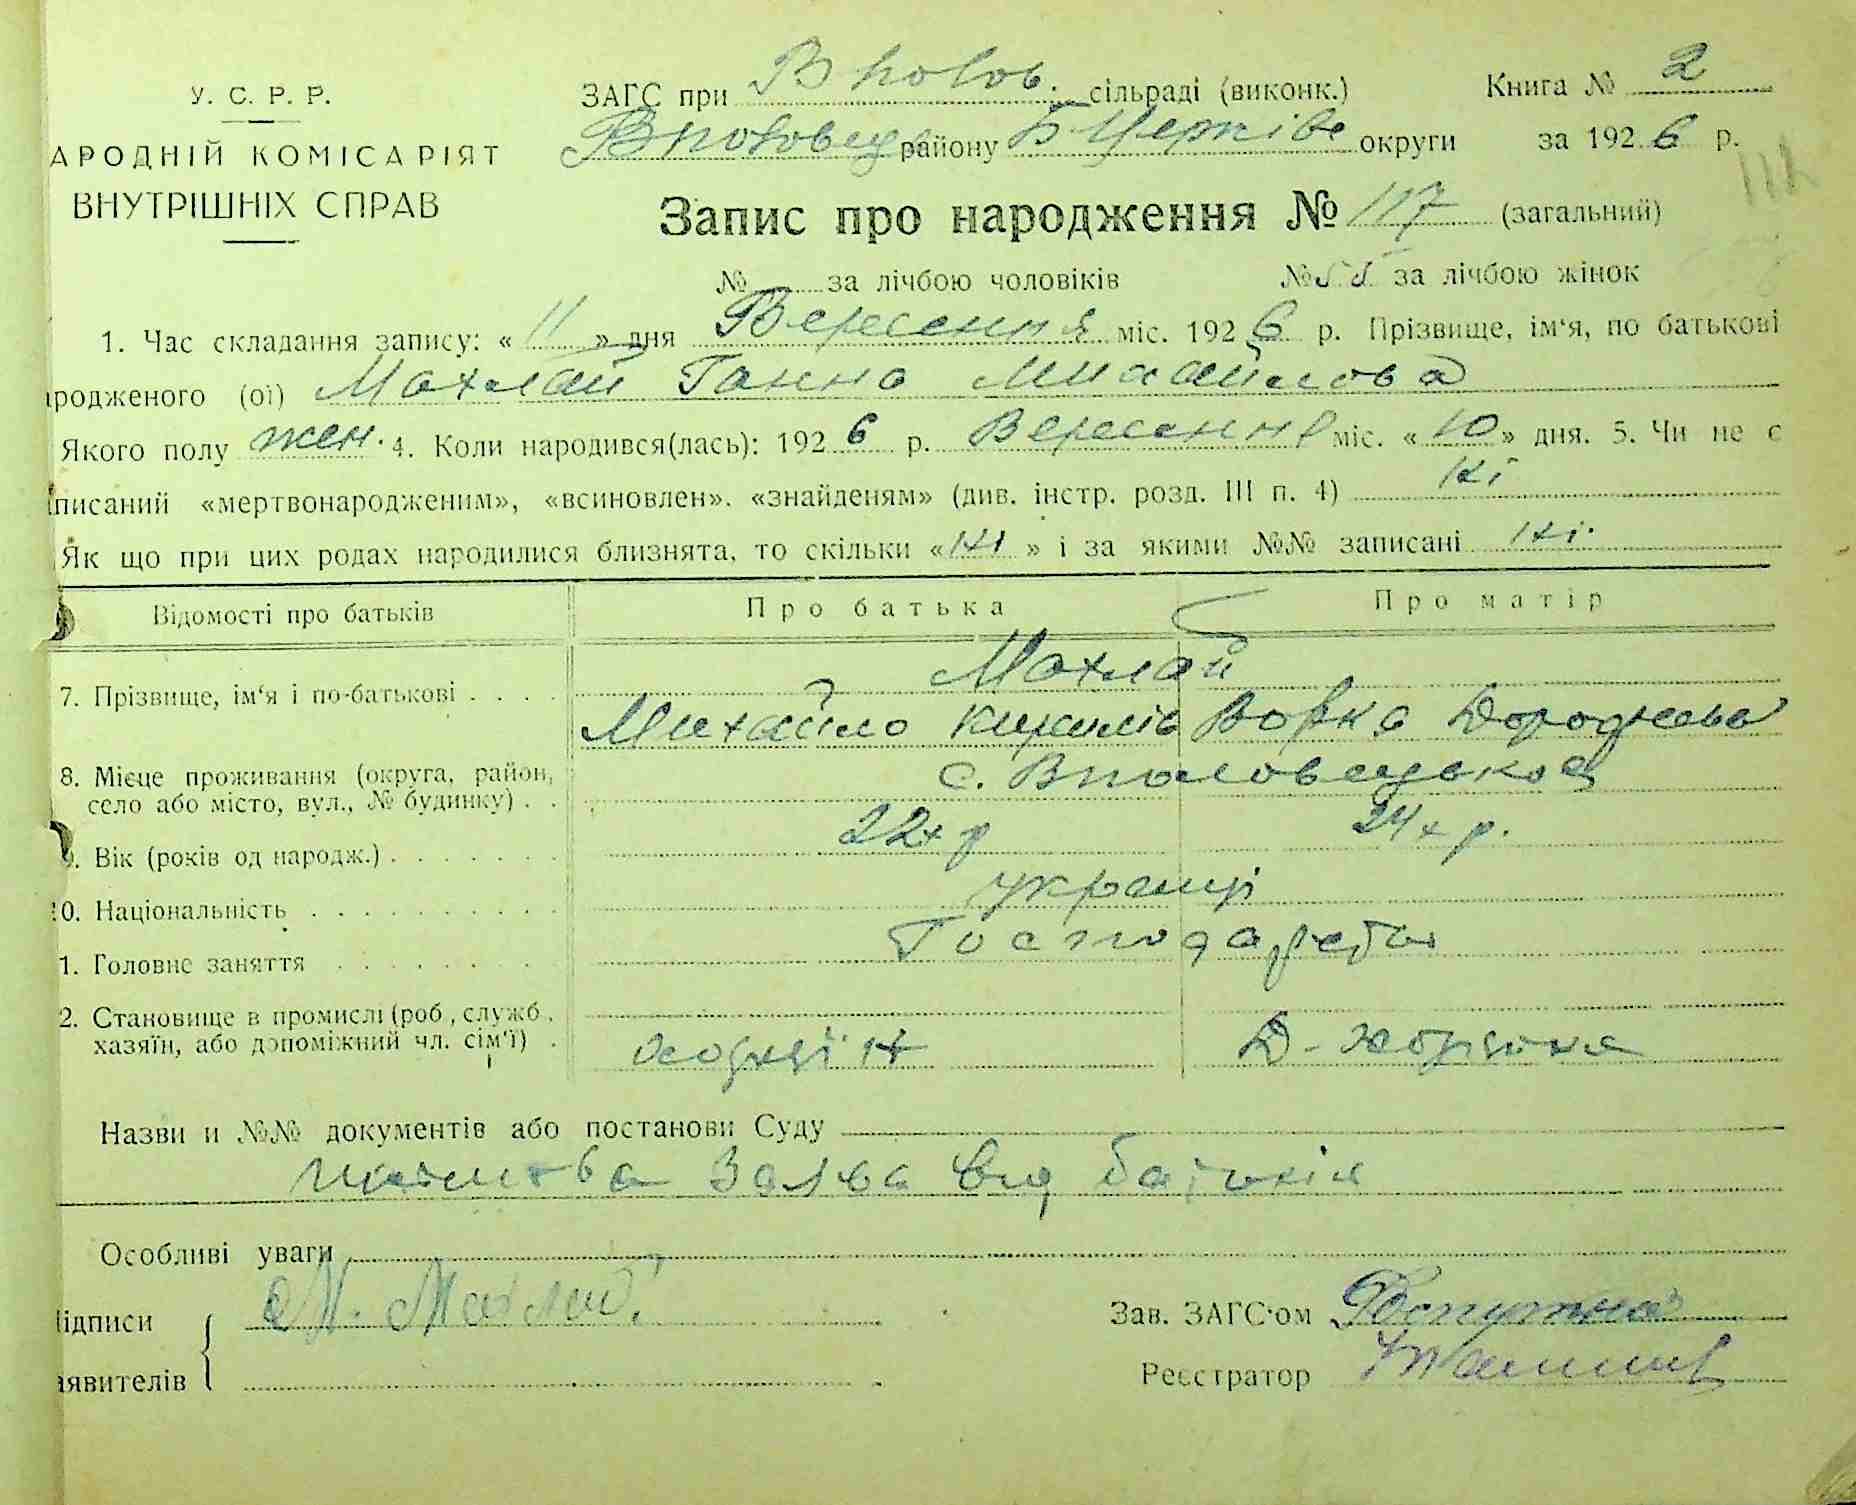 У. С. Р. Р.
АРОДНІЙ КОМІСАРІЯТ
ВНУТРІШНІХ СПРАВ
ЗАГС при В полов. сільраді (виконк.)
Книга № 2
району Б Церківс округи за 1926 р.
Запис про народження № 117 (загальний)
№ за лічбою чоловіків №55 за лічбою жінок
1. Час складання запису: «11» дня Вересння міс. 1926 р. Прізвище, ім'я, по батькові
родженого (ої) Махлай Ганна Михайлова
Якого полу жен. 4. Коли народився(лась): 1926 р. Вересння міс. «10» дня. 5. Чи не є
писаний «мертвонародженим», «всиновлен». «знайденям» (див. інстр. розд. III п. 4) Ні
Як що при цих родах народилися близнята, то скільки «Ні» і за якими №№ записані Ні.
Відомості про батьків
Про батька
Про матір
7. Прізвище, ім'я і по-батькові
Махлай
Михайло Кирилів
8. Місце проживання (округа, район, село або місто, вул., № будинку)
с. Вполовецькое
9. Вік (років од народж.)
22х р
24х р.
10. Національність
українці
1. Головне заняття
Господарство
2. Становище в промислі (роб, служб, хазяїн, або допоміжний чл. сім'ї)
Назви и №№ документів або постанови Суду
Заява від батьків
Особливі уваги
ідписи
аявителів
М. Махлай.
Зав. ЗАГС'ом
Реєстратор